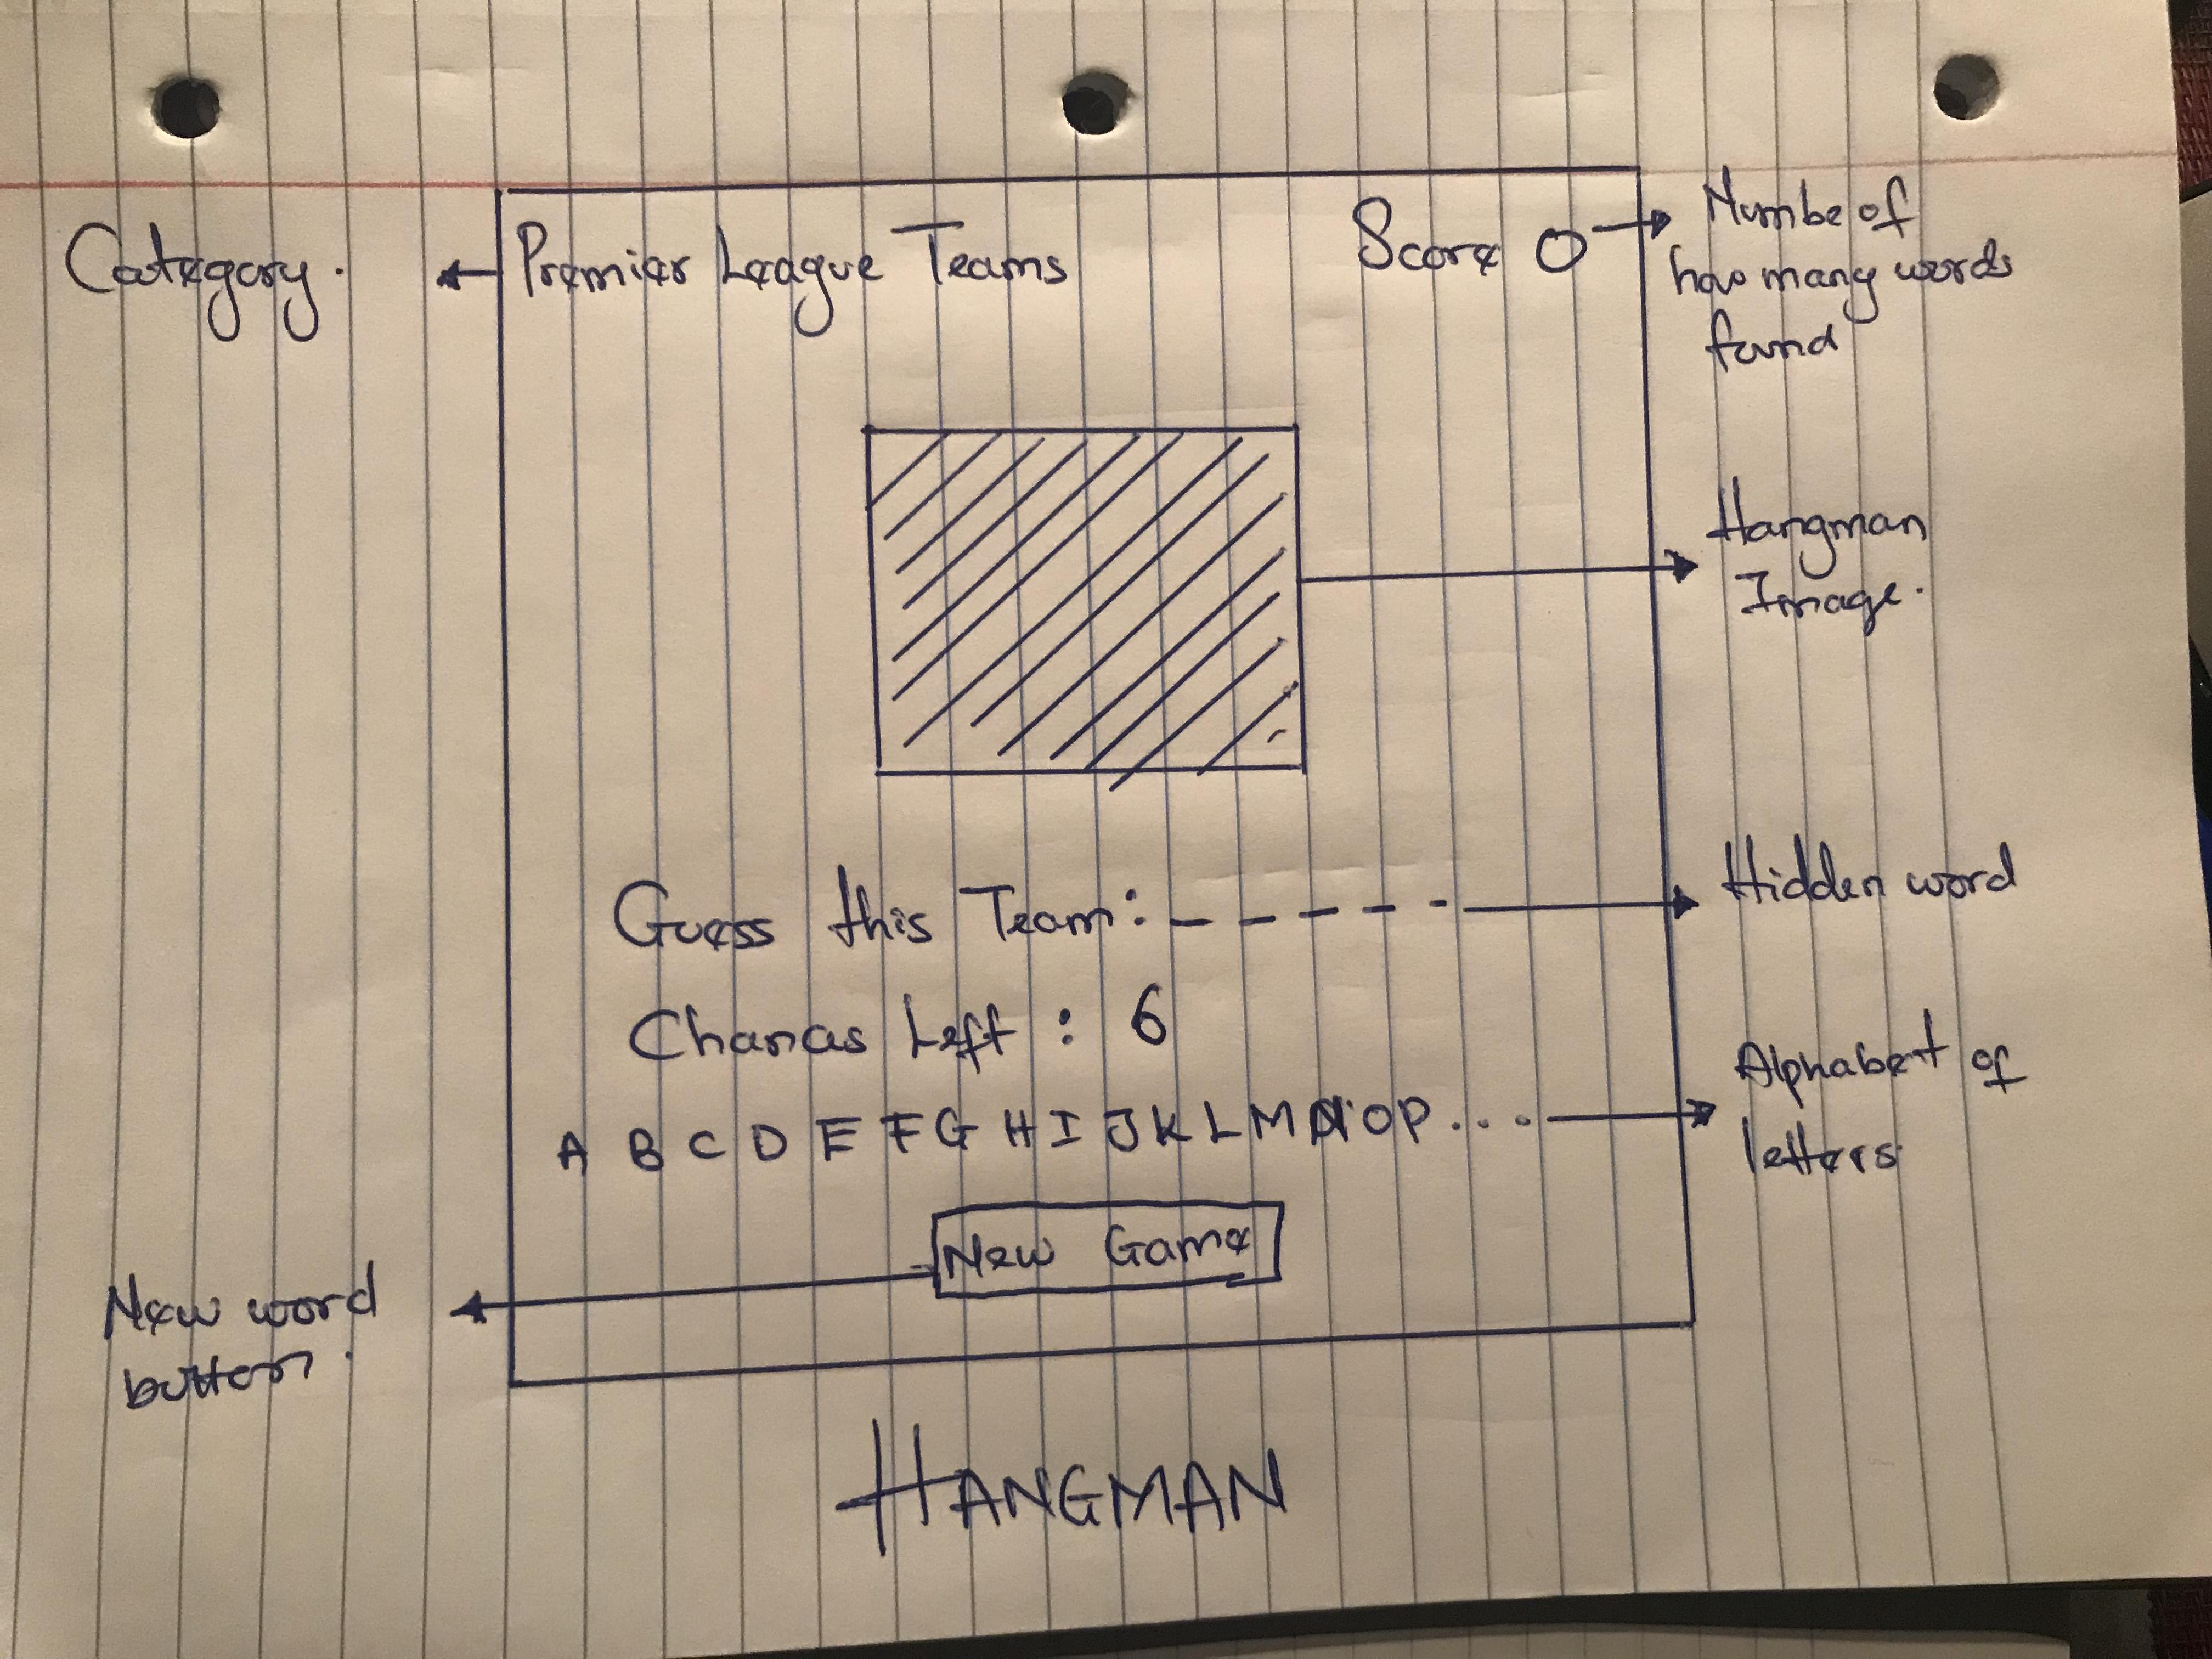 Premier League Teams
Score 0
Number of
how many words
found
Category.
Hangman
Image.
Guess this Team:
Hidden word
Chances Left : 6
A B C D E F G H I J K L M N O P . . .
Alphabet of
letters
New Game
New word
button.
HANGMAN